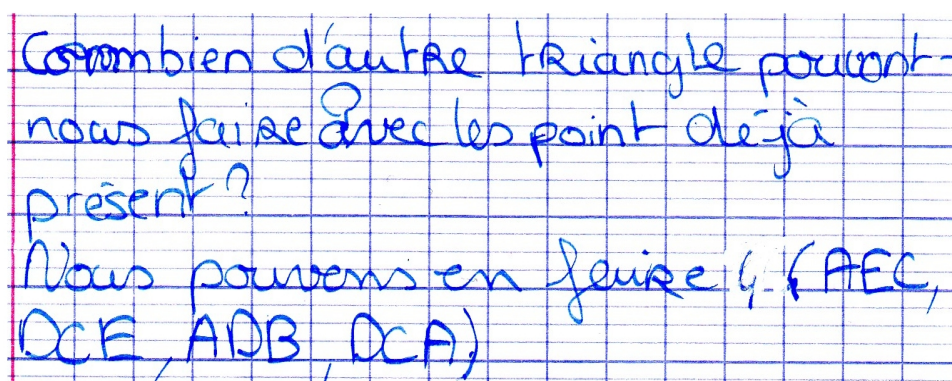 Commbien d'autre triangle pouvont-
nous faire avec les point déjà
présent ?
Nous pouvons en faire 4 (AEC,
DCE, ADB, DCA)